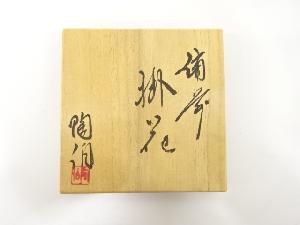 備前
掛花
陶明